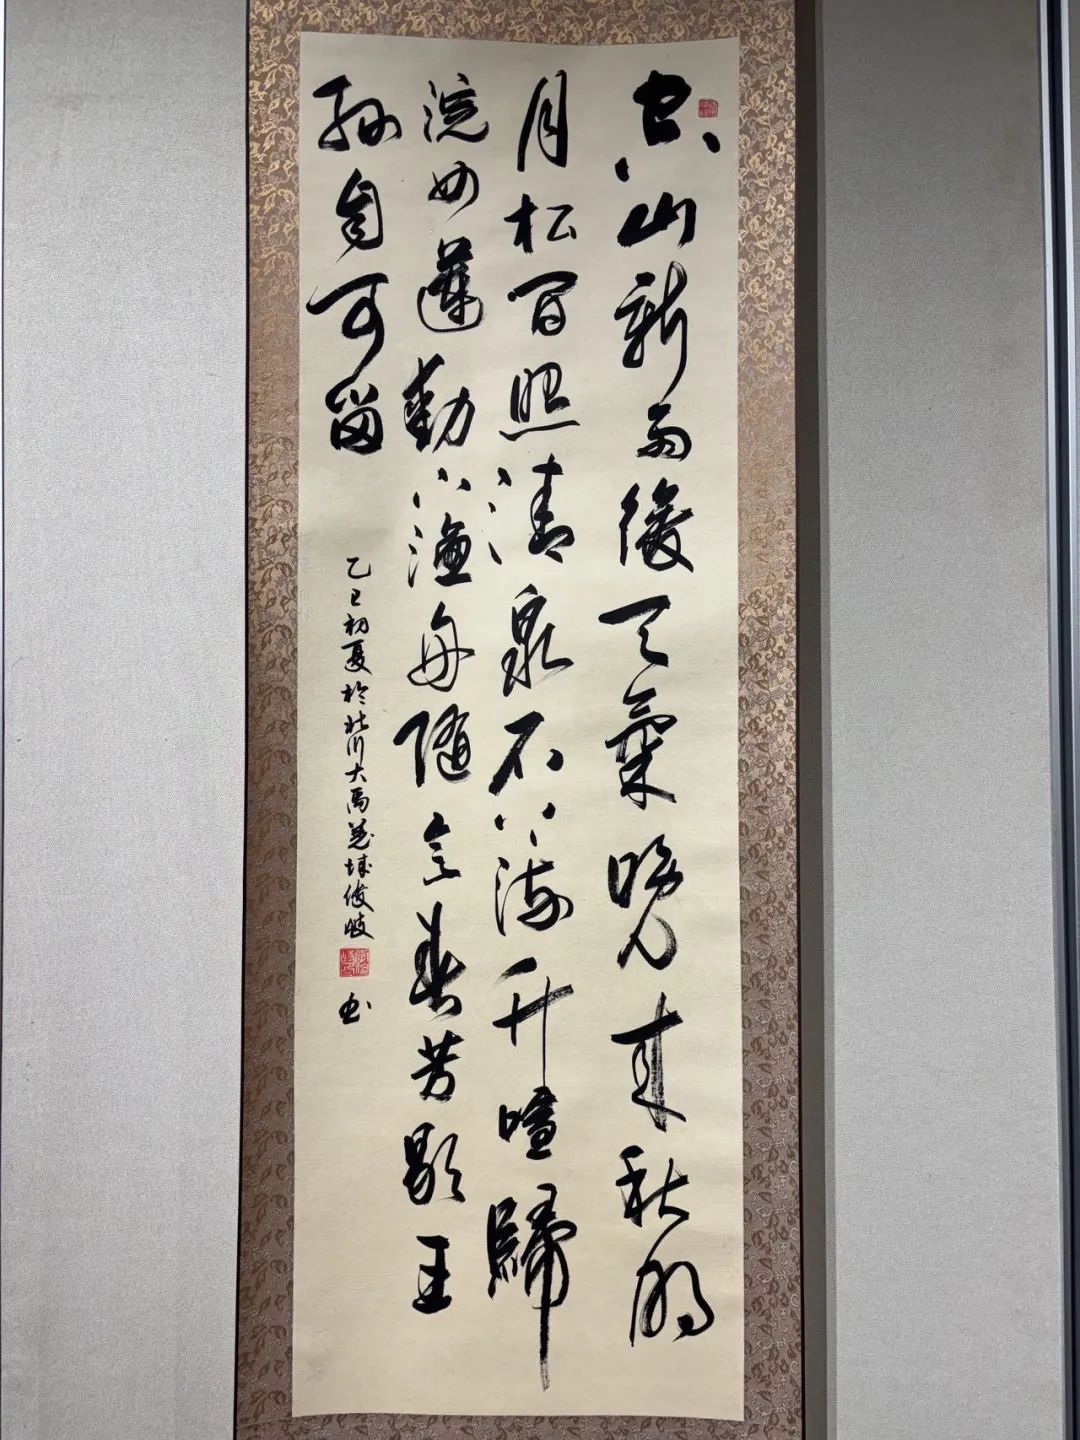 空山新雨後天氣晚來秋明
月松間照清泉石上流竹喧歸
浣女蓮動下漁舟隨意春芳歇王
孫自可留
乙巳初夏於北川大禹羌城俊岐书